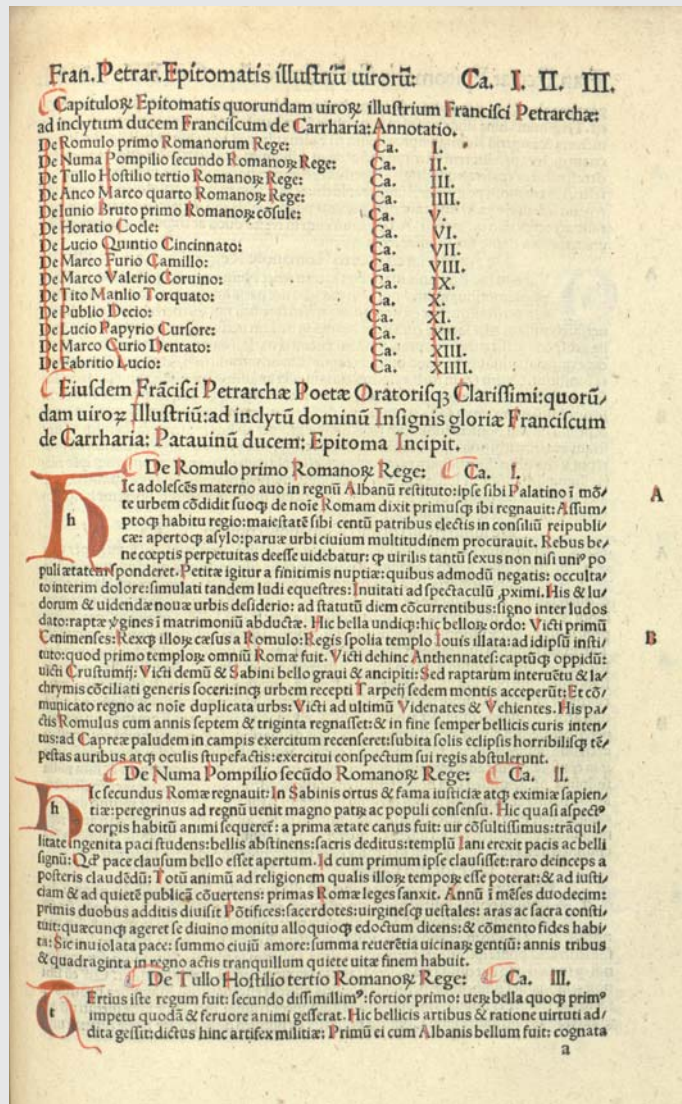 Fran. Petrar. Epitomatis illustriū uirorū: Ca. I. II. III.
Capituloꝝ Epitomatis quorundam uiroꝝ illustrium Francisci Petrarchæ:
ad inclytum ducem Franciscum de Carrharia: Annotatio.
De Romulo primo Romanorum Rege: Ca. I.
De Numa Pompilio secundo Romanoꝝ Rege: Ca. II.
De Tullo Hostilio tertio Romanoꝝ Rege: Ca. III.
De Anco Marco quarto Romanoꝝ Rege: Ca. IIII.
De Iunio Bruto primo Romanoꝝ cōsule: Ca. V.
De Horatio Cocle: Ca. VI.
De Lucio Quintio Cincinnato: Ca. VII.
De Marco Furio Camillo: Ca. VIII.
De Marco Valerio Coruino: Ca. IX.
De Tito Manlio Torquato: Ca. X.
De Publio Decio: Ca. XI.
De Lucio Papyrio Cursore: Ca. XII.
De Marco Curio Dentato: Ca. XIII.
De Fabritio Lucio: Ca. XIIII.
Eiusdem Frācisci Petrarchæ Poetæ Oratorisqꝫ Clarissimi: quorū/
dam uiroꝝ Illustriū: ad inclytū dominū Insignis gloriæ Franciscum
de Carrharia: Patauinū ducem: Epitoma Incipit.
De Romulo primo Romanoꝝ Rege: Ca. I.
h Ic adolescēs materno auo in regnū Albanū restituto: ipse sibi Palatino ī mō/
te urbem cōdidit suoqꝫ de noīe Romam dixit primusqꝫ ibi regnauit: Assum/
ptoqꝫ habitu regio: maiestatē sibi centū patribus electis in consiliū reipubli/
cæ: apertoqꝫ asylo: paruæ urbi ciuium multitudinem procurauit. Rebus be/
ne cœptis perpetuitas deesse uidebatur: ꝙ uirilis tantū sexus non nisi uniꝰ po
puli ætatem responderet. Petitæ igitur a finitimis nuptiæ: quibus admodū negatis: occulta/
to interim dolore: simulati tandem ludi equestres: Inuitati ad spectaculū ꝓximi. His & lu/
dorum & uidendæ nouæ urbis desiderio: ad statutū diem cōcurrentibus: signo inter ludos
dato: raptæ ꝟgines ī matrimoniū abductæ. Hic bella undiqꝫ: hic belloꝝ ordo: Victi primū
Cenimenses: Rexqꝫ illoꝝ cæsus a Romulo: Regis spolia templo Iouis illata: ad idipsū insti/
tuto: quod primo temploꝝ omniū Romæ fuit. Victi dehinc Anthennates: captūqꝫ oppidū:
uicti Crustumij: Victi demū & Sabini bello graui & ancipiti: Sed raptarum interuētu & la/
chrymis cōciliati generis soceri: inqꝫ urbem recepti Tarpeij sedem montis acceperūt: Et cō/
municato regno ac noīe duplicata urbs: Victi ad ultimū Videnates & Vehientes. His pa/
ctis Romulus cum annis septem & triginta regnasset: & in fine semper bellicis curis inten/
tus: ad Capreæ paludem in campis exercitum recenseret: subita solis eclipsis horribilisqꝫ tē/
pestas auribus atqꝫ oculis stupefactis: exercitui conspectum sui regis abstulerunt.
De Numa Pompilio secūdo Romanoꝝ Rege: Ca. II.
h Ic secundus Romæ regnauit: In Sabinis ortus & fama iusticiæ atqꝫ eximiæ sapien/
tiæ: peregrinus ad regnū uenit magno patꝝ ac populi consensu. Hic quasi aspectꝰ
corpis habitū animi sequeret̄: a prima ætate canus fuit: uir cōsultissimus: trāquil/
litate ingenita paci studens: bellis abstinens: sacris deditus: templū Iani erexit pacis ac belli
signū: Qꝙ pace clausum bello esset apertum. Id cum primum ipse clausisset: raro deinceps a
posteris claudēdū: Totū animū ad religionem qualis illoꝝ tempoꝝ esse poterat: & ad iusti/
ciam & ad quietē publicā cōuertens: primas Romæ leges sanxit. Annū ī mēses duodecim:
primis duobus additis diuisit Pōtifices: sacerdotes: uirginesqꝫ uestales: aras ac sacra consti/
tuit: quæcunqꝫ ageret se diuino monitu alloquioqꝫ edoctum dicens: & cōmento fides habi/
ta: Sic inuiolata pace: summo ciuiū amore: summa reuerētia uicinaꝝ gentiū: annis tribus
& quadraginta in regno actis tranquillum quiete uitæ finem habuit.
De Tullo Hostilio tertio Romanoꝝ Rege: Ca. III.
t Ertius iste regum fuit: secundo dissimillimꝰ: fortior primo: ueꝝ bella quoqꝫ primꝰ
impetu quodā & feruore animi gesserat. Hic bellicis artibus & ratione uirtuti ad/
dita gessit: dictus hinc artifex militiæ: Primū ei cum Albanis bellum fuit: cognata
a
A
B